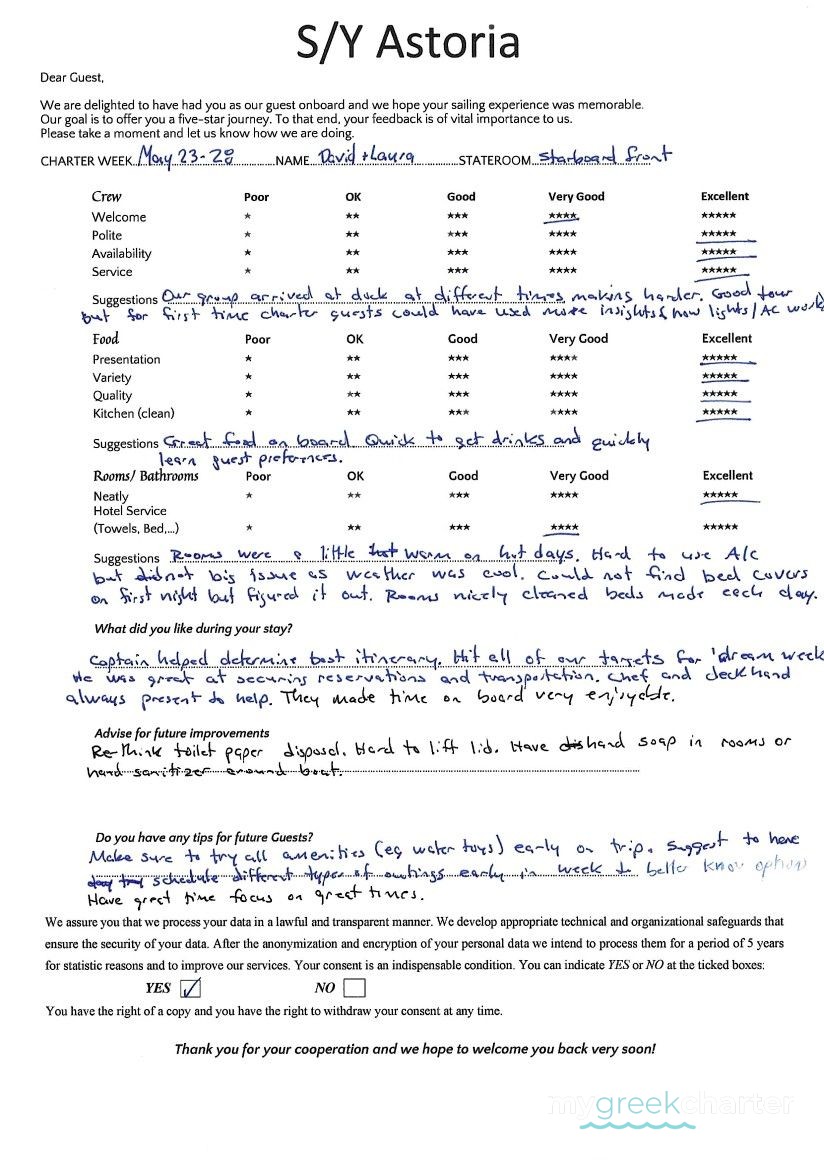 S/Y Astoria
Dear Guest,
We are delighted to have had you as our guest onboard and we hope your sailing experience was memorable.
Our goal is to offer you a five-star journey. To that end, your feedback is of vital importance to us.
Please take a moment and let us know how we are doing.
CHARTER WEEK May 23-28 NAME David + Laura STATEROOM Starboard front
Crew Poor OK Good Very Good Excellent
Welcome * ** *** **** *****
Polite * ** *** **** *****
Availability * ** *** **** *****
Service * ** *** **** *****
Suggestions Our group arrived at dock at different times making harder. Good tour
but for first time charter guests could have used more insights & how lights/AC work
Food Poor OK Good Very Good Excellent
Presentation * ** *** **** *****
Variety * ** *** **** *****
Quality * ** *** **** *****
Kitchen (clean) * ** *** **** *****
Suggestions Great food on board Quick to get drinks and quickly
learn guest preferences.
Rooms/ Bathrooms Poor OK Good Very Good Excellent
Neatly * ** *** **** *****
Hotel Service
(Towels, Bed,...) * ** *** **** *****
Suggestions Rooms were a little warm on hot days. Hard to use A/C
but not big issue as weather was cool. Could not find bed covers
on first night but figured it out. Rooms nicely cleaned beds made each day.
What did you like during your stay?
Captain helped determine best itinerary. Hit all of our targets for 'dream week
He was great at securing reservations and transportation. Chef and deckhand
always present to help. They made time on board very enjoyable.
Advise for future improvements
Re-think toilet paper disposal. Hard to lift lid. Have hand soap in rooms or
hand sanitizer around boat.
Do you have any tips for future Guests?
Make sure to try all amenities (eg water toys) early on trip. Suggest to have
schedule different types of outings early in week to better know options
Have great time focus on great times.
We assure you that we process your data in a lawful and transparent manner. We develop appropriate technical and organizational safeguards that
ensure the security of your data. After the anonymization and encryption of your personal data we intend to process them for a period of 5 years
for statistic reasons and to improve our services. Your consent is an indispensable condition. You can indicate YES or NO at the ticked boxes:
YES NO
You have the right of a copy and you have the right to withdraw your consent at any time.
Thank you for your cooperation and we hope to welcome you back very soon!
mygreekcharter